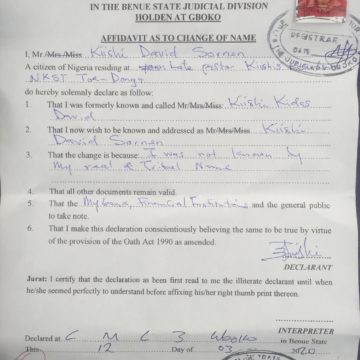 IN THE BENUE STATE JUDICIAL DIVISION
HOLDEN AT GBOKO
AFFIDAVIT AS TO CHANGE OF NAME
I, Mr/Mrs/Miss: Kiishi David Sornen
A citizen of Nigeria residing at Late pastor Kiishi's
NKST Tse-Dongo
do hereby solemnly declare as follow:
1. That I was formerly known and called Mr/Mrs/Miss: Kiishi Kidos
David
2. That I now wish to be known and addressed as Mr/Mrs/Miss: Kiishi
David Sornen
3. That the change is because: I was not known by
My real & Tribal Name
4. That all other documents remain valid.
5. That the My bank, Financial Institutions and the general public
to take note.
6. That I make this declaration conscientiously believing the same to be true by virtue
of the provision of the Oath Act 1990 as amended.
DECLARANT
Jurat: I certify that the declaration as been first read to me the illiterate declarant until when
he/she seemed perfectly to understand before affixing his/her right thumb print thereon.
INTERPRETER
Declared at C M C 3 Gboko in Benue State
This 12 Day of 03 2020
REGISTRAR
DATE